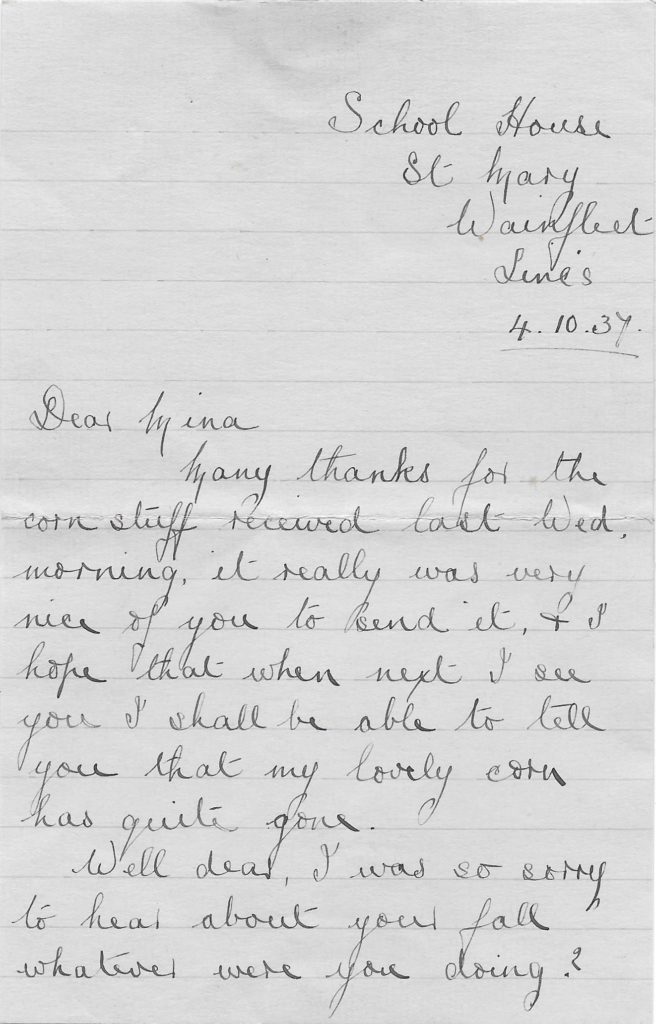 School House
St Mary
Wainfleet
Lincs
4.10.37.
Dear Mina
Many thanks for the
corn stuff recieved last Wed.
morning, it really was very
nice of you to send it, & I
hope that when next I see
you I shall be able to tell
you that my lovely corn
has quite gone.
Well dear, I was so sorry
to hear about your fall
whatever were you doing?